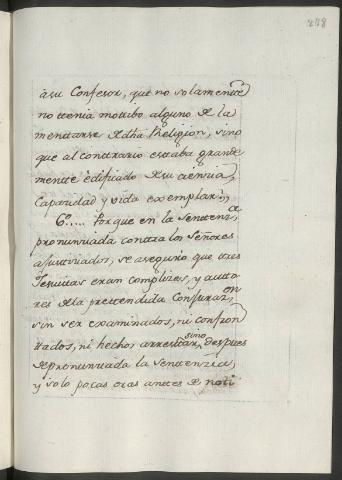 à su Confesor, que no solamentte
no ttenia mottibo alguno de la
menttarse de dha Religion, sino
que al conttrario estaba grande
mentte edificado de su ciencia,
Capazidad y vida exemplar.
6º..... Porque en la Senttencia
pronunciada conttra los Señores
ajusticiados, se aseguro que tres
Jesuitas eran complizes, y autto
res de la prettendida Conjurazon
sin ser examinados, ni confron
ttados, ni hechos arresttar, sino despues
de pronunciada la Senttenzia,
y solo pocas oras anttes de noti